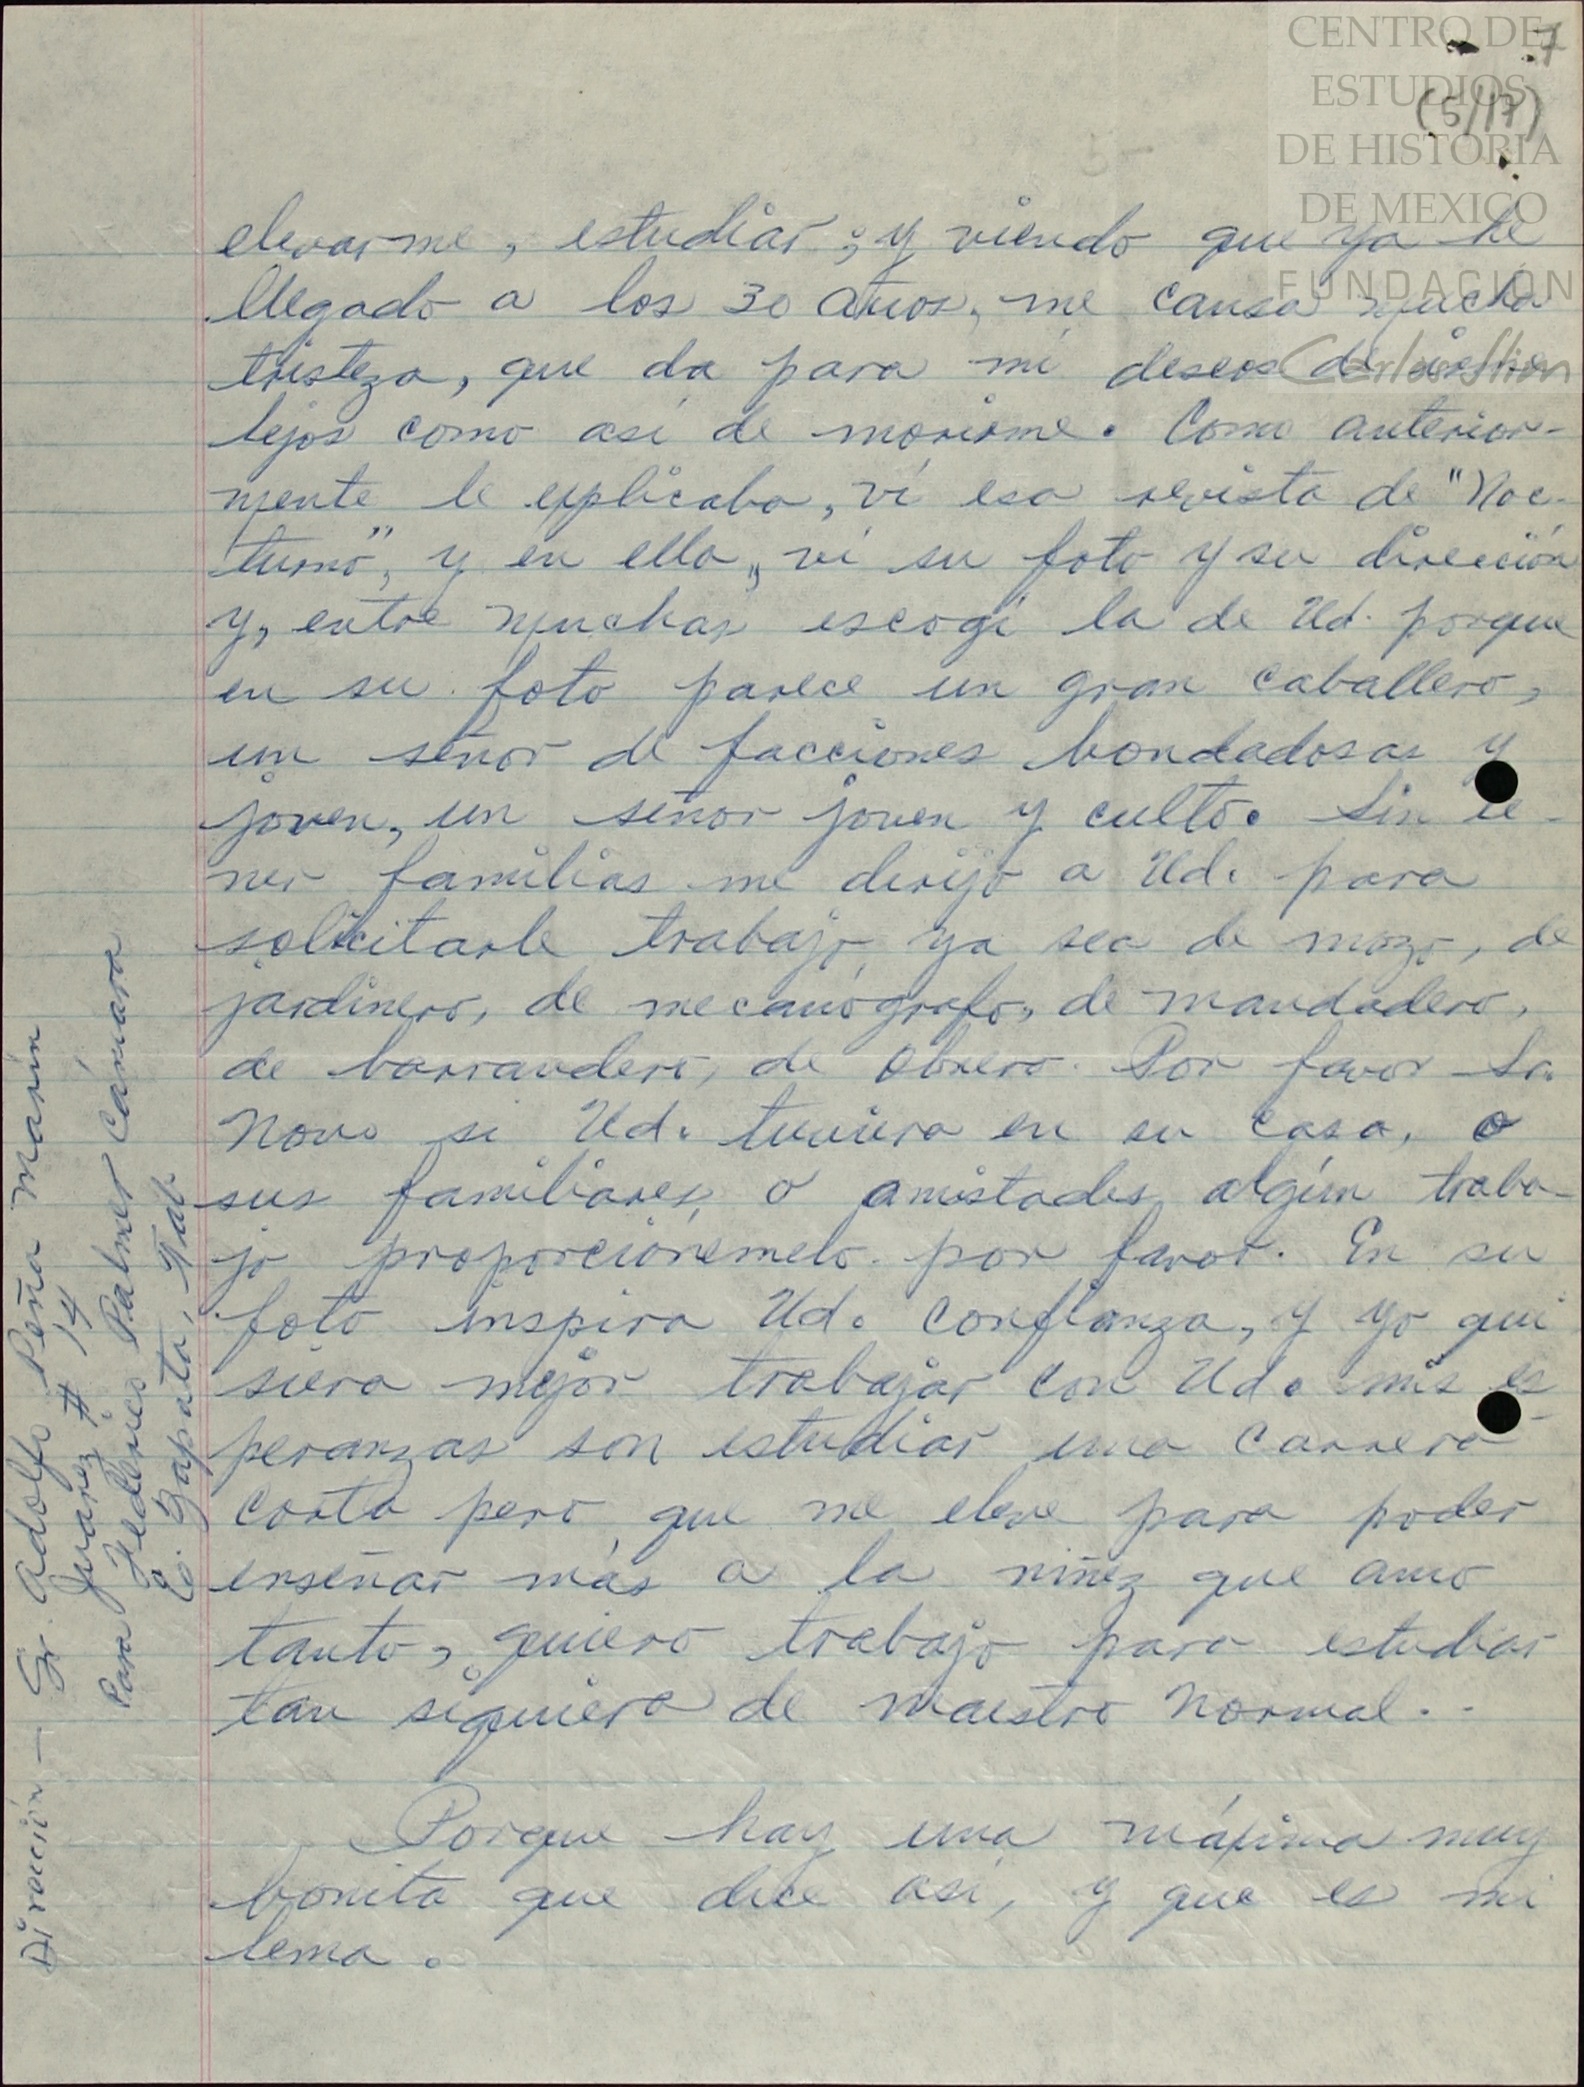 CENTRO DE
ESTUDIOS
DE HISTORIA
DE MEXICO
FUNDACIÓN
Carlos Slim
7
(5/17)
elevarme, estudiar; y viendo que ya he
llegado a los 30 años, me causa mucha
tristeza, que da para mi deseos de irme
lejos como así de morirme. Como anterior-
mente le explicaba, ví esa revista de "Noc-
turno", y en ella, ví su foto y su dirección
y, entre muchas escogí la de Ud. porque
en su foto parece un gran caballero,
un señor de facciones bondadosas y
joven, un señor joven y culto. Sin te-
ner familias me dirijo a Ud. para
solicitarle trabajo ya sea de mozo, de
jardinero, de mecanógrafo, de mandadero,
de barrandero, de obrero. Por favor Sr.
Novo si Ud. tuviera en su casa, o
sus familiares, o amistades algún traba-
jo proporciónemelo por favor. En su
foto inspira Ud. confianza, y yo qui
siera mejor trabajar con Ud. mis es-
peranzas son estudiar una carrera
corta pero que me eleve para poder
enseñar más a la niñez que amo
tanto, quiero trabajo para estudiar
tan siquiera de maestro Normal..
Porque hay una máxima muy
bonita que dice así, y que es mi
lema.
Dirección — Sr. Adolfo Peña Marín
Juarez # 14
Para Federico Palmer Cámara
E. Zapata, Tab.